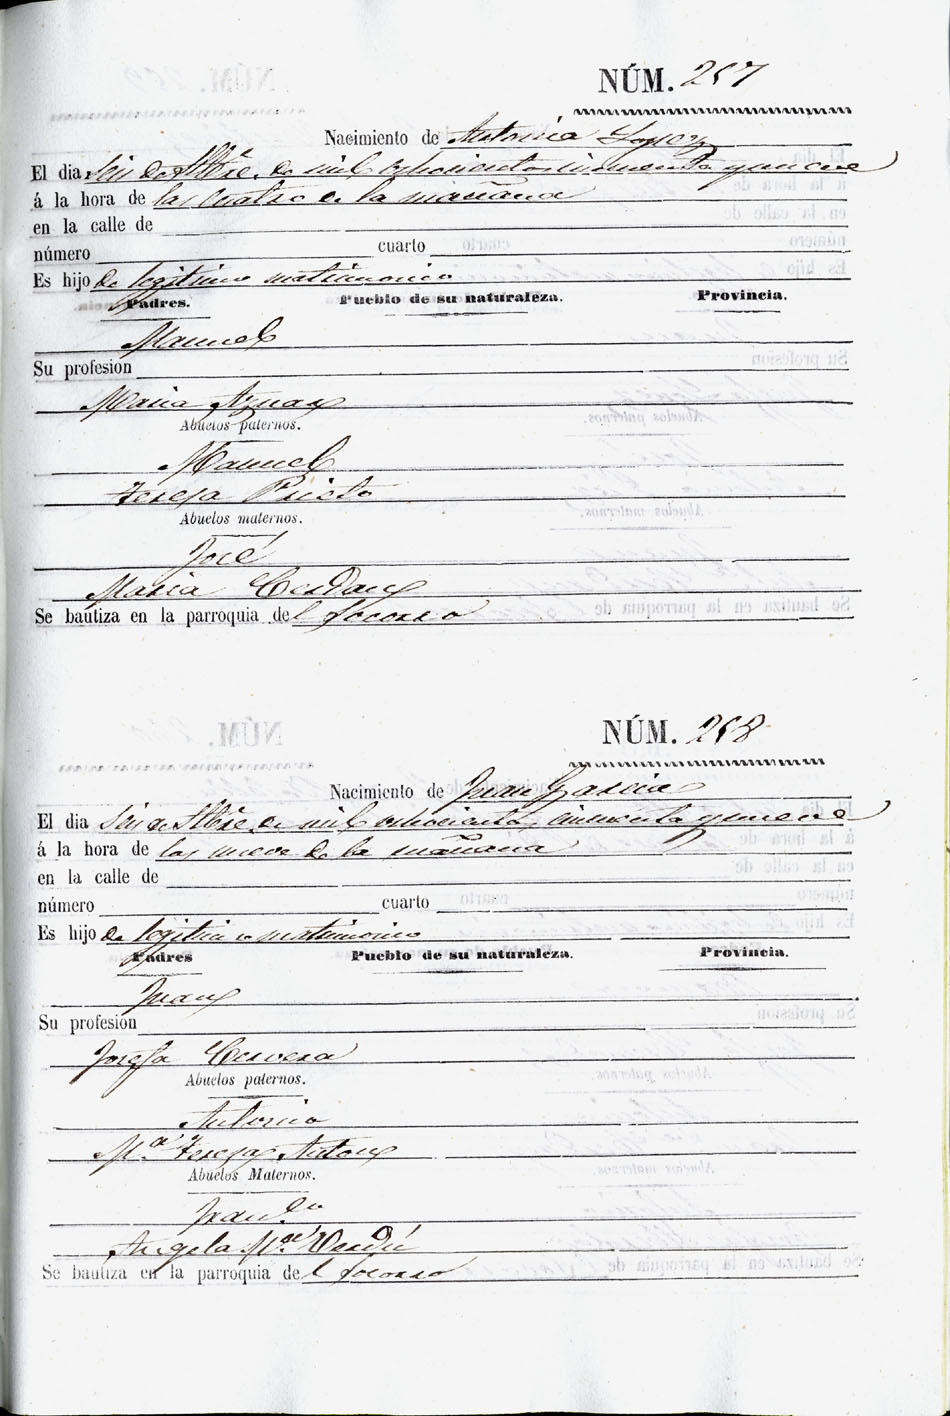 NÚM. 257
Nacimiento de Antonia Lopez
El dia seis de Stbre. de mil ochocientos cincuenta y nueve
á la hora de las cuatro de la mañana
en la calle de
número cuarto
Es hijo de legitimo matrimonio
Padres. Pueblo de su naturaleza. Provincia.
Manuel
Su profesion
Maria Aznar
Abuelos paternos.
Manuel
Teresa Prieto
Abuelos maternos.
José
Maria Cerdan
Se bautiza en la parroquia del Socorro
NÚM. 258
Nacimiento de Juan Garcia
El dia seis de Stbre. de mil ochocientos cincuenta y nueve
á la hora de las nueve de la mañana
en la calle de
número cuarto
Es hijo de legitimo matrimonio
Padres Pueblo de su naturaleza. Provincia.
Juan
Su profesion
Josefa Cervera
Abuelos paternos.
Antonio
M.ª Teresa Anton
Abuelos Maternos.
Fran.co
Angela M.ª Verdú
Se bautiza en la parroquia del Socorro